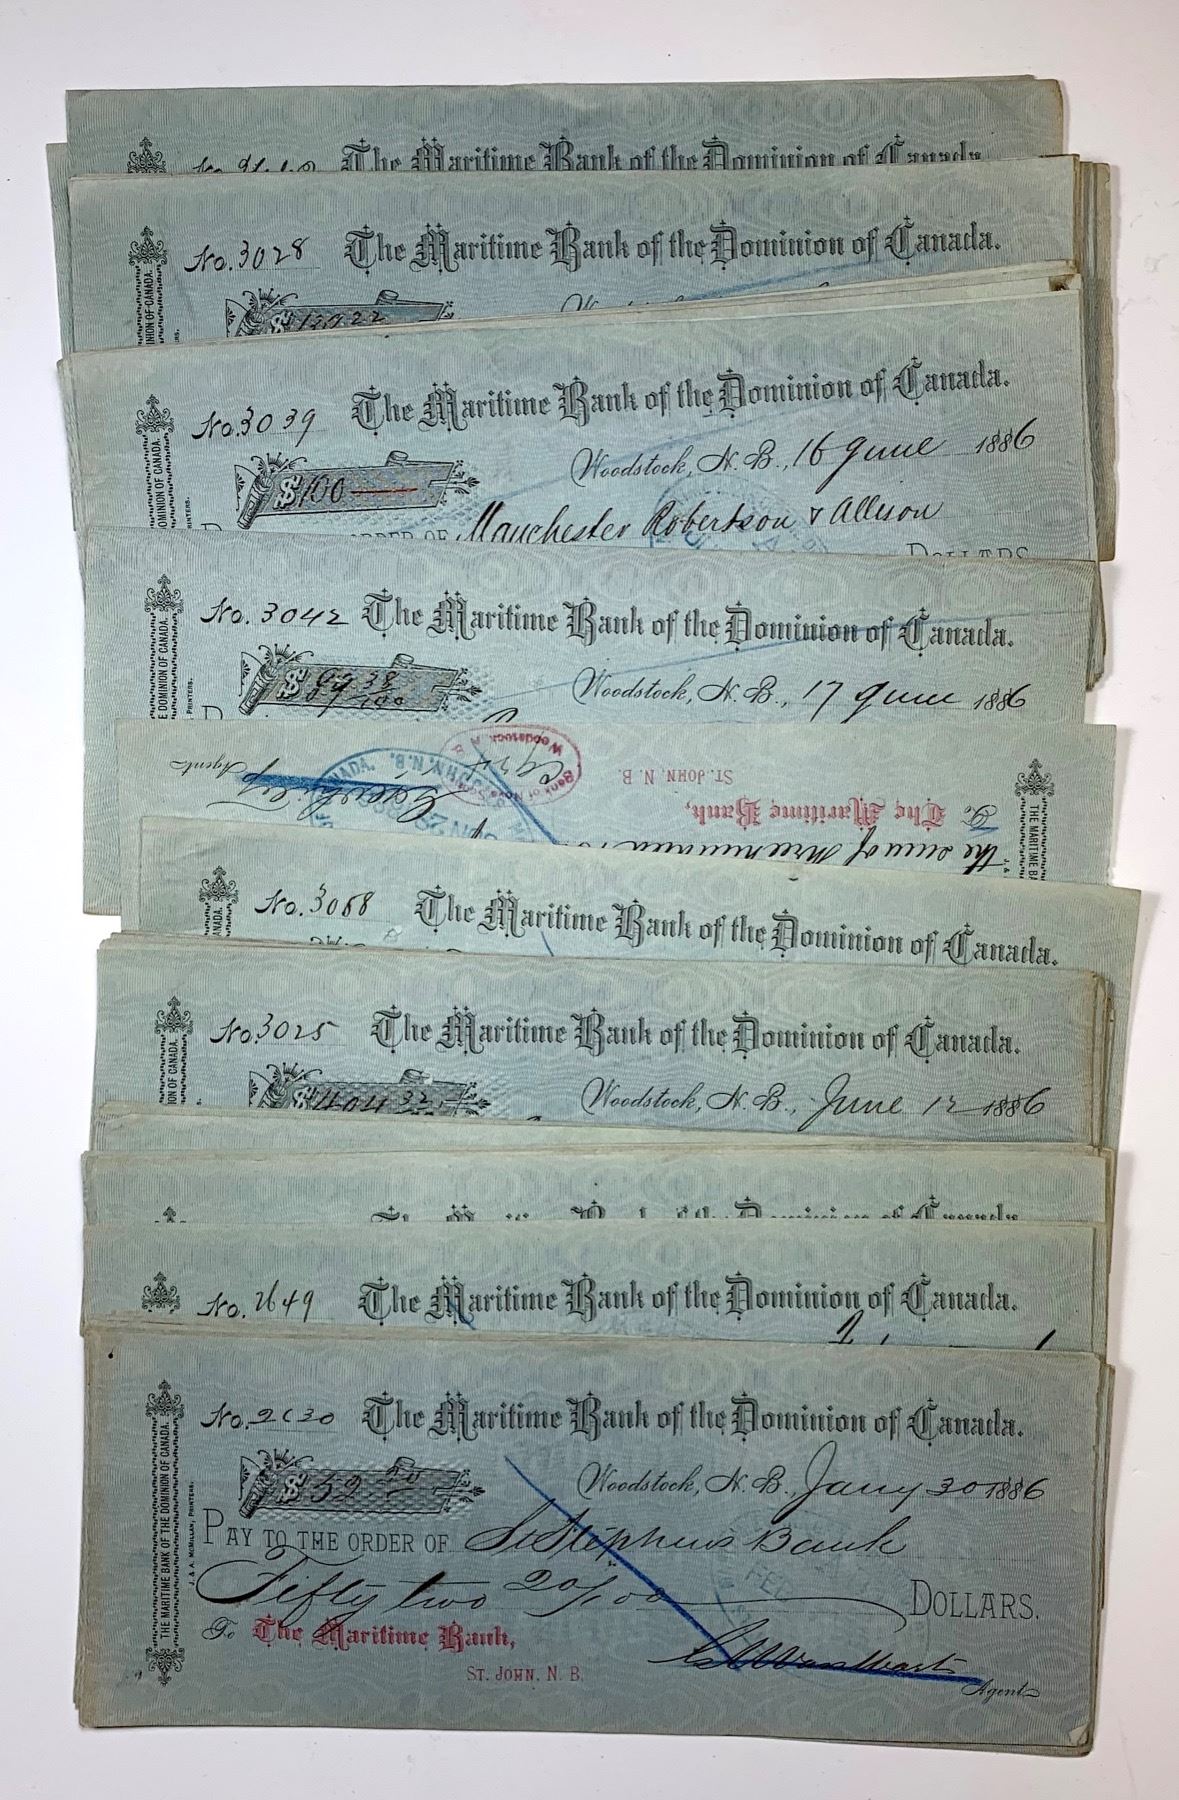 No. The Maritime Bank of the Dominion of Canada
No. 3028 The Maritime Bank of the Dominion of Canada.
NION OF CANADA.
$ 139 22
No. 3039 The Maritime Bank of the Dominion of Canada.
Woodstock, N. B., 16 June 1886
OMINION OF CANADA.
PRINTERS.
$ 100
ORDER OF Manchester Robertson & Allison
DOLLARS
No. 3042 The Maritime Bank of the Dominion of Canada.
Woodstock, N. B., 17 June 1886
E DOMINION OF CANADA.
PRINTERS.
$ 99 38/100
the sum of three hundred
To The Maritime Bank,
ST. JOHN, N. B.
Agent
THE MARITIME BA
J. &
Bank of Nova Scotia
Woodstock, N. B.
CANADA.
ST. JOHN, N. B.
No. 3088 The Maritime Bank of the Dominion of Canada.
ANADA.
No. 3025 The Maritime Bank of the Dominion of Canada.
Woodstock, N. B., June 12 1886
NION OF CANADA.
$ 404 32
No. 2649 The Maritime Bank of the Dominion of Canada.
No. 2630 The Maritime Bank of the Dominion of Canada.
Woodstock, N. B., Jany 30 1886
$ 52 20
PAY TO THE ORDER OF St Stephens Bank
Fifty two 20/100 DOLLARS.
To The Maritime Bank,
ST. JOHN, N. B.
Agent
THE MARITIME BANK OF THE DOMINION OF CANADA.
J. & A. MCMILLAN, PRINTERS.